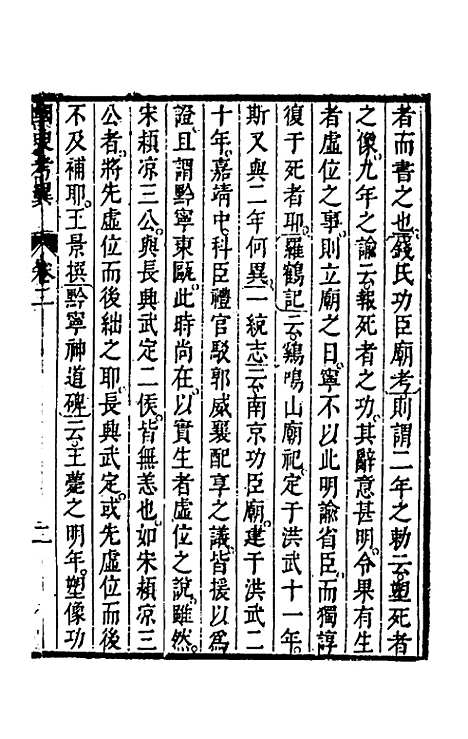 者而書之也錢氏功臣廟考則謂二年之勅云塑死者
之像九年之諭云報死者之功其辭意甚明令果有生
者虛位之事則立廟之日寧不以此明諭省臣而獨諄
復于死者耶羅鶴記云鷄鳴山廟祀定于洪武十一年
斯又與二年何異一統志云南京功臣廟建于洪武二
十年嘉靖中科臣禮官駁郭威襄配享之議皆援以爲
證且謂黔寧東甌此時尚在以實生者虛位之說雖然
宋潁凉三公與長興武定二侯皆無恙也如宋潁凉三
公者將先虛位而後絀之耶長興武定或先虛位而後
不及補耶王景撰黔寧神道碑云王薨之明年塑像功
國史考異
卷二
二